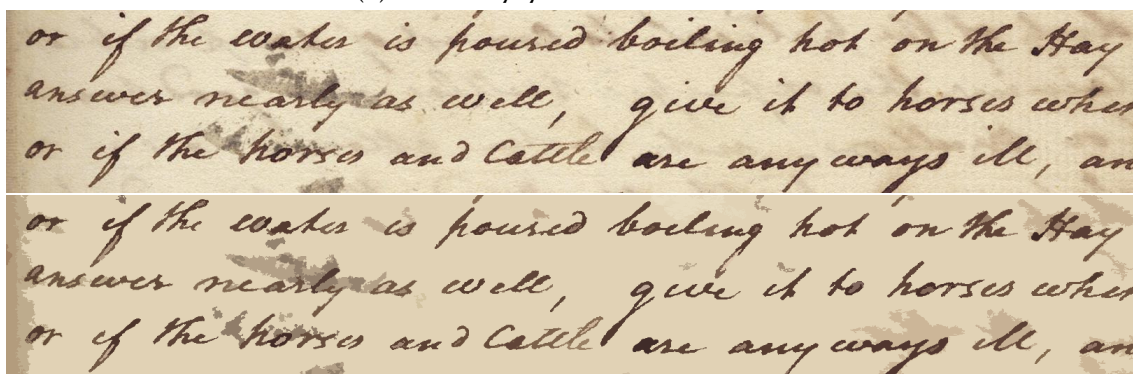 or if the water is poured boiling hot on the Hay
answer nearly as well, give it to horses when
or if the horses and Cattle are any ways ill, an
or if the water is poured boiling hot on the Hay
answer nearly as well, give it to horses when
or if the horses and Cattle are any ways ill, an